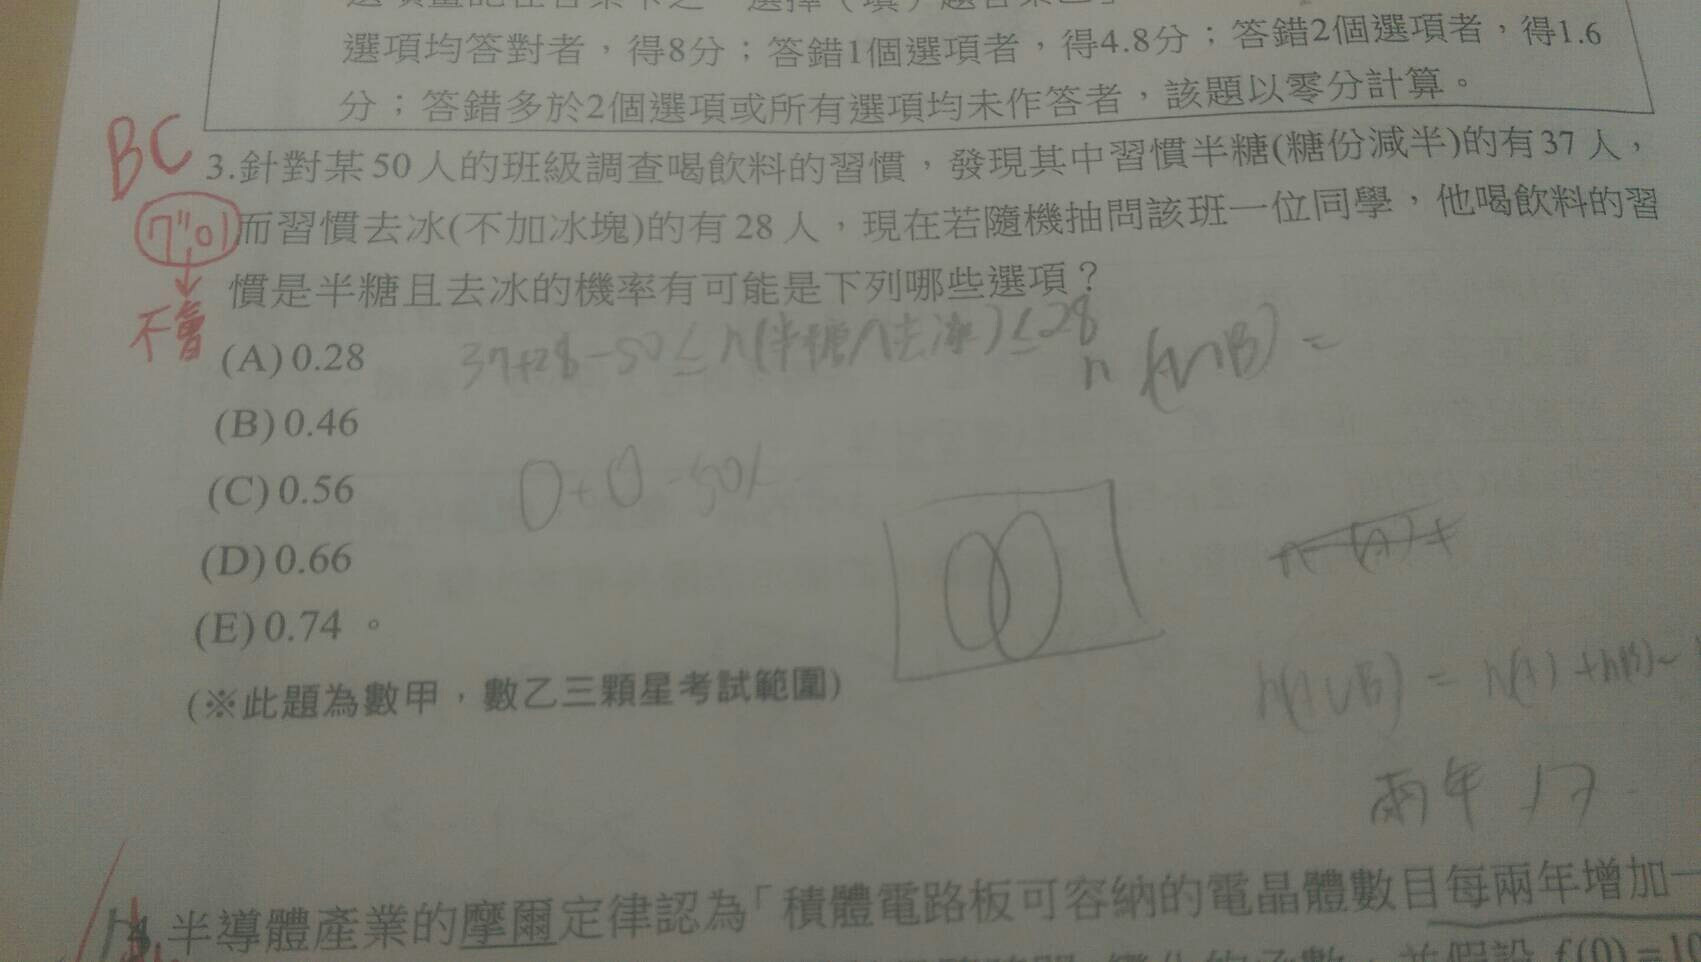 選項均答對者，得8分；答錯1個選項者，得4.8分；答錯2個選項者，得1.6
分；答錯多於2個選項或所有選項均未作答者，該題以零分計算。
BC
3.針對某50人的班級調查喝飲料的習慣，發現其中習慣半糖(糖份減半)的有37人，
而習慣去冰(不加冰塊)的有28人，現在若隨機抽問該班一位同學，他喝飲料的習
慣是半糖且去冰的機率有可能是下列哪些選項？
不會
37+28-50≤n(半糖∩去冰)≤28
n(A∩B)=
(A)0.28
(B)0.46
(C)0.56
(D)0.66
(E)0.74。
n(A)+
n(A∪B)=n(A)+n(B)-
(※此題為數甲，數乙三顆星考試範圍)
兩年
半導體產業的摩爾定律認為「積體電路板可容納的電晶體數目每兩年增加一